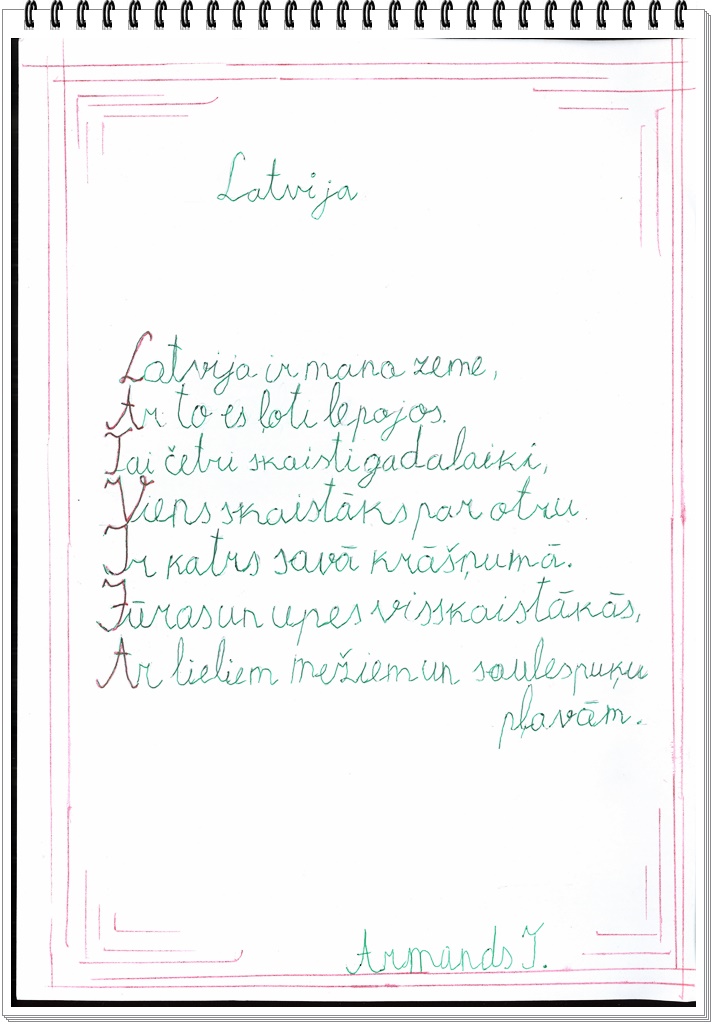 Latvija
Latvija ir mana zeme,
Ar to es ļoti lepojos.
Tai četri skaisti gadalaiki,
Viens skaistāks par otru
Ir katrs savā krāšņumā.
Jūras un upes visskaistākās,
Ar lieliem mežiem un saulespuķu
pļavām.
Armands J.